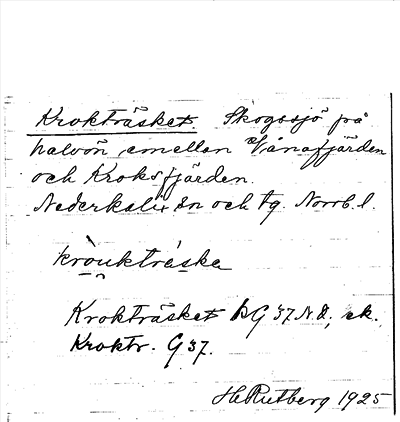 Krokträsket. Skogssjö på
halvön emellan Vånafjärden
och Kroksfjärden.
Nederkalix sn och tg. Norrb. l.
kròukträska
Krokträsket G 37 N.O., ek.
Kroktr. G 37.
H Rutberg 1925